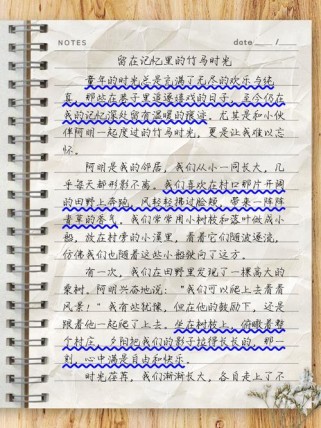 NOTES
date ___ / ___
留在记忆里的竹马时光
童年的时光总是充满了无尽的欢乐与纯
真，那些在巷子里追逐嬉戏的日子，至今仍在
我的记忆深处留有温暖的痕迹。尤其是和小伙
伴阿明一起度过的竹马时光，更是让我难以忘
怀。
阿明是我的邻居，我们从小一同长大，几
乎每天都形影不离。我们喜欢在村口那片开阔
的田野上奔跑，风轻轻拂过脸颊，带来一阵阵
青草的香气。我们常常用小树枝和落叶做成小
船，放在村旁的小溪里，看着它们随波逐流，
仿佛我们也随着这些小船驶向了远方。
有一次，我们在田野里发现了一棵高大的
枣树。阿明兴奋地说：“我们可以爬上去看看
风景！”我有些犹豫，但在他的鼓励下，还是
跟着他一起爬了上去。坐在树枝上，俯瞰着整
个村庄，夕阳把我们的影子拉得长长的，那一
刻，心中满是自由和快乐。
时光荏苒，我们渐渐长大，各自走上了不